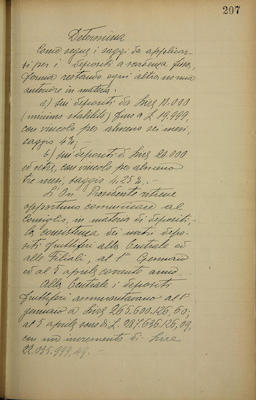 207
Determina
come segue i saggi da applicar-
si per i depositi a scadenza fissa,
ferma restando ogni altra norma
anteriore in materia:
a) sui depositi da Lire 10.000
(minimo stabilito) fino a L. 19.999,
con vincolo per almeno sei mesi,
saggio 4%;
b) sui depositi di Lire 20.000
ed oltre, con vincolo per almeno
tre mesi, saggio 4.25%.
Il On. Presidente ritiene
opportuno comunicare al
Consiglio, in materia di depositi,
la consistenza dei nostri depo-
siti fruttiferi alla Centrale ed
alle Filiali, al 1° Gennaio
ed al 5 aprile corrente anno.
Alla Centrale i depositi
fruttiferi ammontavano al 1°
gennaio a Lire 265.600.126,60;
al 5 aprile sono di L. 287.636.126,09,
con un incremento di Lire
22.035.999,49.